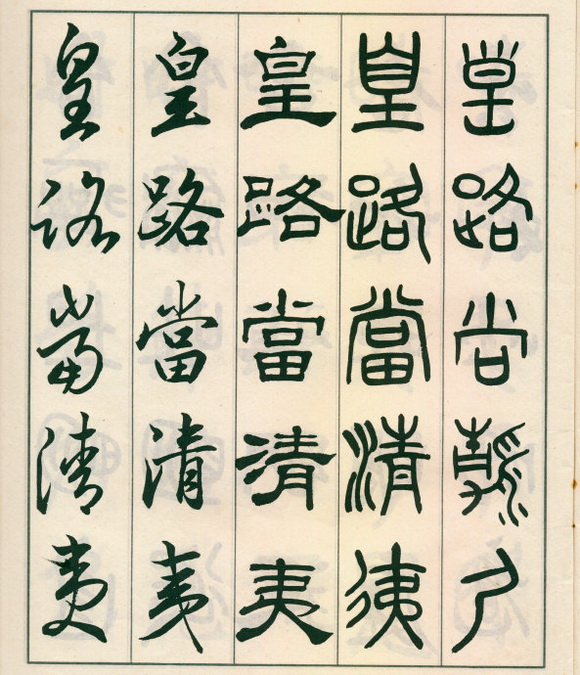 皇路尚
皇路當清夷
皇路當清夷
皇路當清夷
皇路當清夷